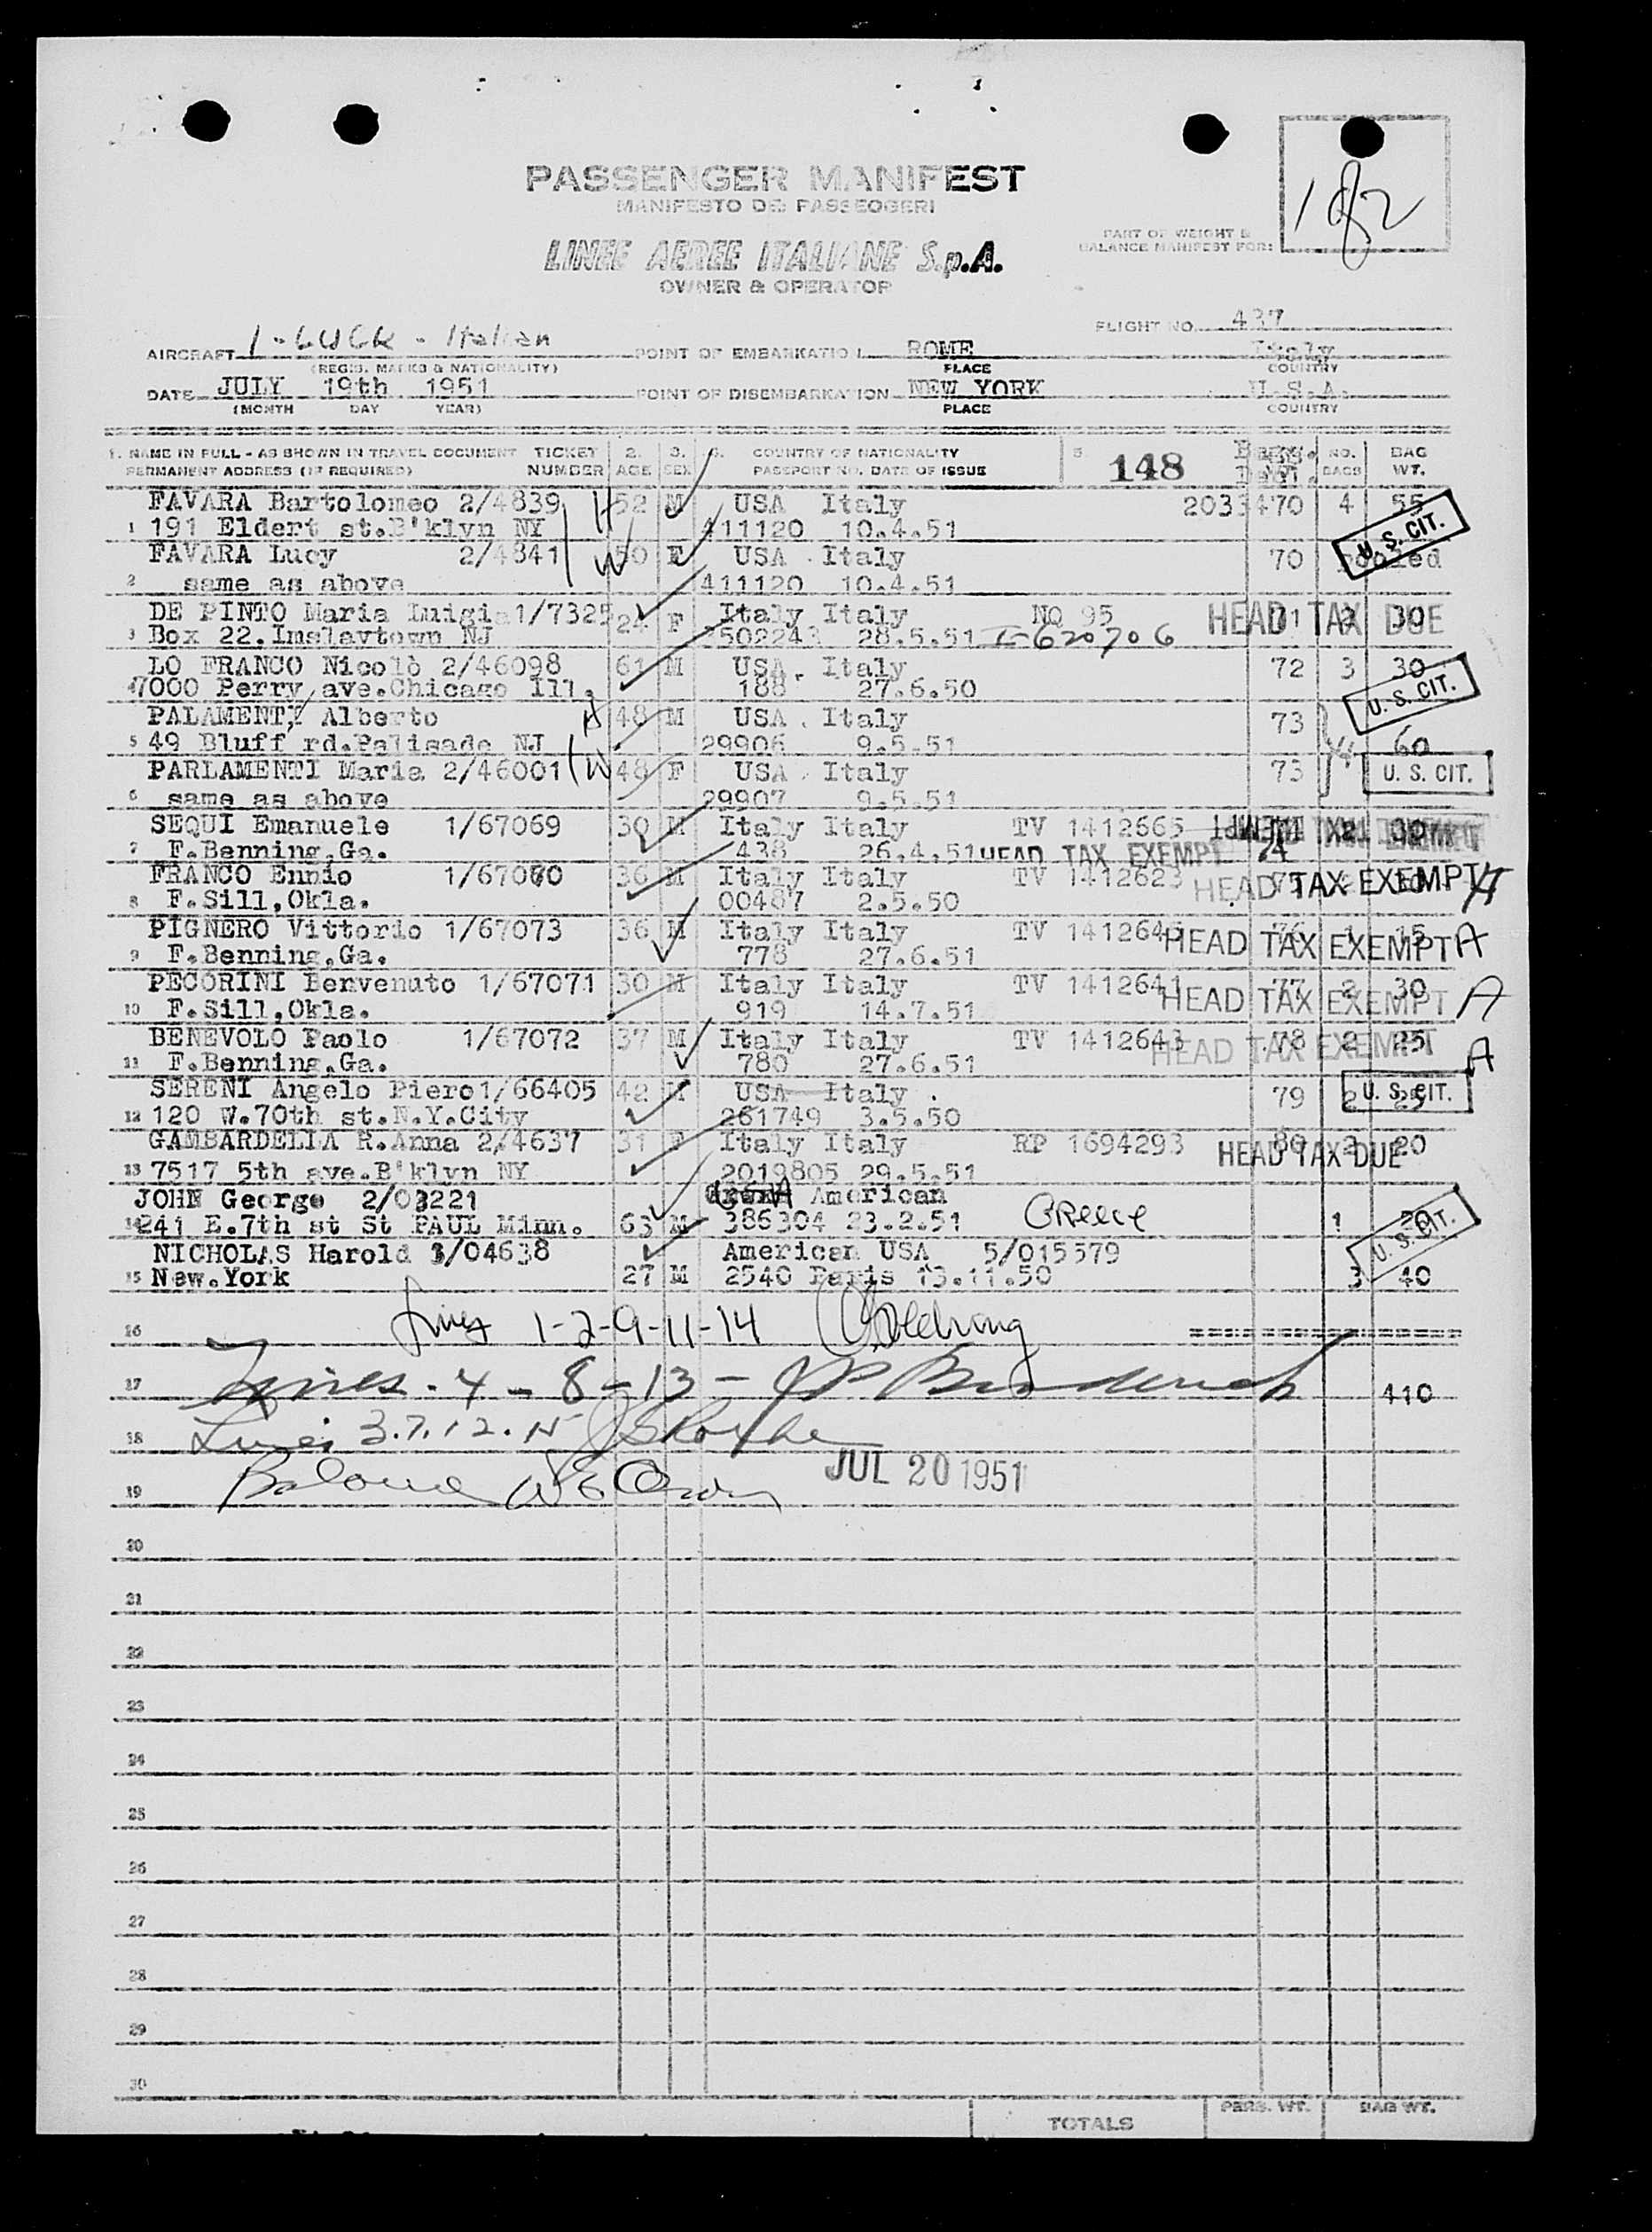 182
PASSENGER MANIFEST
MANIFESTO DEI PASSEOGERI
LINEE AEREE ITALIANE S.p.A.
OWNER & OPERATOR
PART OF WEIGHT &
BALANCE MANIFEST FOR:
FLIGHT NO. 437
AIRCRAFT - Italian POINT OF EMBARKATION ROME Italy
(REGIS. MARKS & NATIONALITY) PLACE COUNTRY
DATE JULY 19th 1951 POINT OF DISEMBARKATION NEW YORK U.S.A.
(MONTH DAY YEAR) PLACE COUNTRY
1. NAME IN FULL - AS SHOWN IN TRAVEL DOCUMENT TICKET 2. 3. 4. COUNTRY OF NATIONALITY 5 148 NO. BAG
PERMANENT ADDRESS (IF REQUIRED) NUMBER AGE SEX PASSPORT NO. DATE OF ISSUE BAGS WT.
FAVARA Bartolomeo 2/4839 H 52 M USA Italy 70 4 55
1 191 Eldert st.B'klyn NY 411120 10.4.51 U. S. CIT.
FAVARA Lucy 2/4841 W 50 F USA Italy 70 pooled
2 same as above 411120 10.4.51
DE PINTO Maria Luigia 1/7325 24 F Italy Italy NQ 95 71 2 30 HEAD TAX DUE
3 Box 22.Imslaytown NJ 2502243 28.5.51 I-620706
LO FRANCO Nicolò 2/46098 61 M USA. Italy 72 3 30
4 7000 Perry ave.Chicago Ill. 188 27.6.50 U. S. CIT.
PALAMENTI Alberto H 48 M USA. Italy 73
5 49 Bluff rd.Palisade NJ 29906 9.5.51 4 60
PARLAMENTI Maria 2/46001 W 48 F USA. Italy 73 U. S. CIT.
6 same as above 29907 9.5.51
SEQUI Emanuele 1/67069 30 M Italy Italy TV 1412665 30
7 F.Benning,Ga. 438 26.4.51 HEAD TAX EXEMPT A
FRANCO Ennio 1/67060 36 M Italy Italy TV 1412623 HEAD TAX EXEMPT A
8 F.Sill,Okla. 00487 2.5.50
PIGNERO Vittorio 1/67073 36 M Italy Italy TV 141264 76 1 15 HEAD TAX EXEMPT A
9 F.Benning,Ga. 778 27.6.51
PECORINI Benvenuto 1/67071 30 M Italy Italy TV 1412641 77 2 30 HEAD TAX EXEMPT A
10 F.Sill,Okla. 919 14.7.51
BENEVOLO Paolo 1/67072 37 M Italy Italy TV 1412643 78 2 25 HEAD TAX EXEMPT A
11 F.Benning.Ga. 780 27.6.51
SERENI Angelo Piero 1/66405 42 M USA Italy. 79 2 25 U. S. CIT.
12 120 W.70th st.N.Y.City 261749 3.5.50
GAMBARDELLA R.Anna 2/4637 31 F Italy Italy RP 1694293 80 2 20 HEAD TAX DUE
13 7517 5th ave.B'klyn NY 2019805 29.5.51
JOHN George 2/03221 USA American
14 241 E.7th st St PAUL Minn. 63 M 386304 23.2.51 Greece 1 20 U. S. CIT.
NICHOLAS Harold 3/04638 American USA 5/015579
15 New.York 27 M 2540 Paris 13.11.50 3 40
16 Lines 1-2-9-11-14
17 Lines - 4 - 8 - 13 - 410
18 Lines 3.7.12.15
19 Balance JUL 20 1951
20
21
22
23
24
25
26
27
28
29
30
TOTALS PERS. WT. BAG WT.